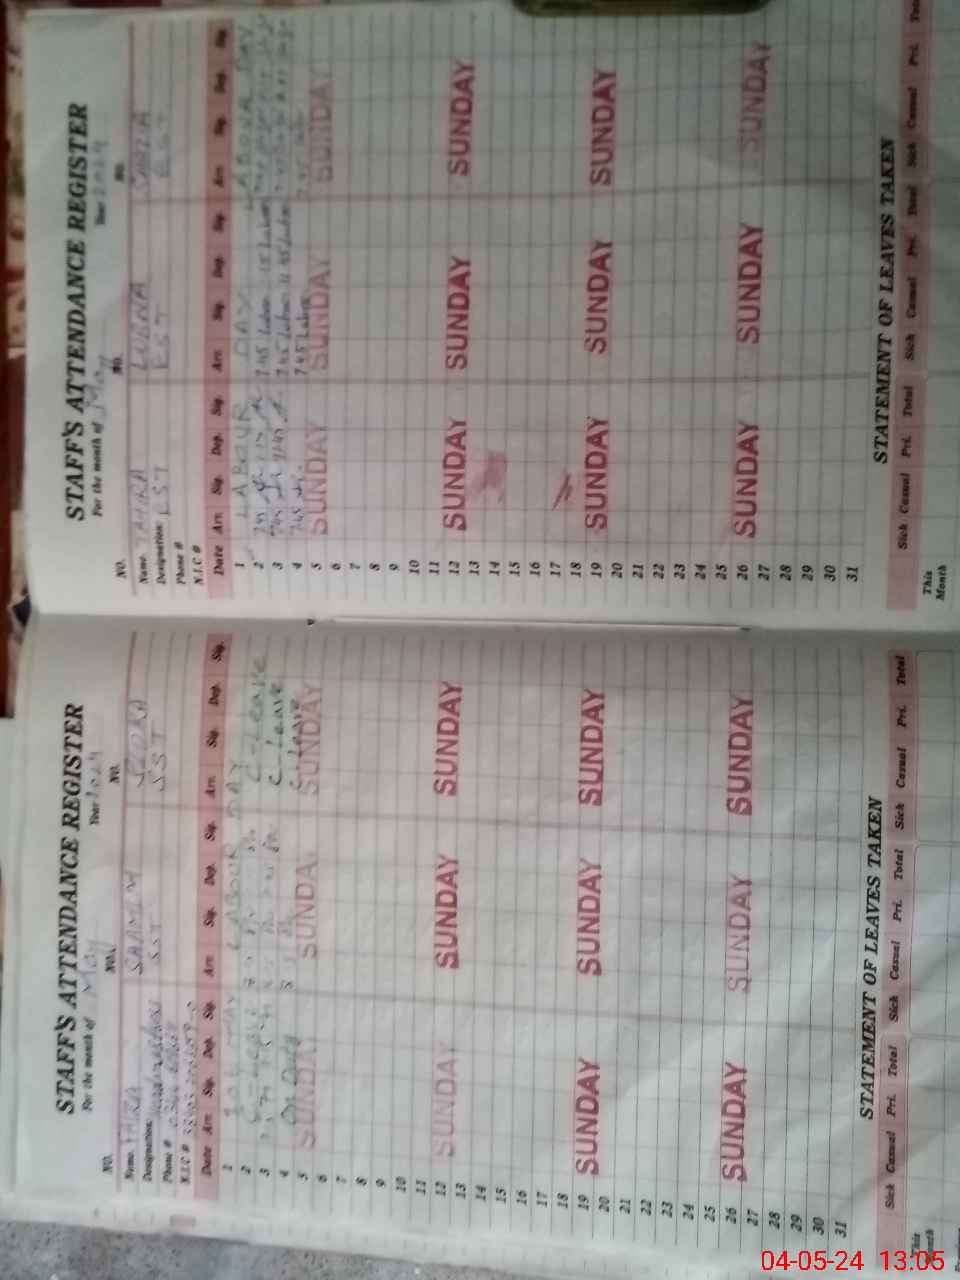 STAFF'S ATTENDANCE REGISTER
For the month of May Year 2024
NO. NO. NO.
Name. SAAMEN
Designation: Headmistress SST SST
Phone #
N.I.C #
Date Arr. Sig. Dep. Sig. Arr. Sig. Dep. Sig. Arr. Sig. Dep. Sig.
1 LABOUR DAY
2 C-Leave
3 C-Leave
4 On Duty C-Leave
5 SUNDAY SUNDAY SUNDAY
6
7
8
9
10
11
12 SUNDAY SUNDAY SUNDAY
13
14
15
16
17
18
19 SUNDAY SUNDAY SUNDAY
20
21
22
23
24
25
26 SUNDAY SUNDAY SUNDAY
27
28
29
30
31
STATEMENT OF LEAVES TAKEN
Sick Casual Pri. Total Sick Casual Pri. Total Sick Casual Pri. Total
This Month
STAFF'S ATTENDANCE REGISTER
For the month of May Year 2024
NO. NO. NO.
Name. TAHIRA LUBNA
Designation: EST EST EST
Phone #
N.I.C #
Date Arr. Sig. Dep. Sig. Arr. Sig. Dep. Sig. Arr. Sig. Dep. Sig.
1 LABOUR DAY LABOUR DAY
2 7.45 7.45 Lubna
3 7.45 7.45 Lubna 11.45 Lubna
4 7.45 7.45 Lubna
5 SUNDAY SUNDAY SUNDAY
6
7
8
9
10
11
12 SUNDAY SUNDAY SUNDAY
13
14
15
16
17
18
19 SUNDAY SUNDAY SUNDAY
20
21
22
23
24
25
26 SUNDAY SUNDAY SUNDAY
27
28
29
30
31
STATEMENT OF LEAVES TAKEN
Sick Casual Pri. Total Sick Casual Pri. Total Sick Casual Pri. Total
This Month
04-05-24 13:05